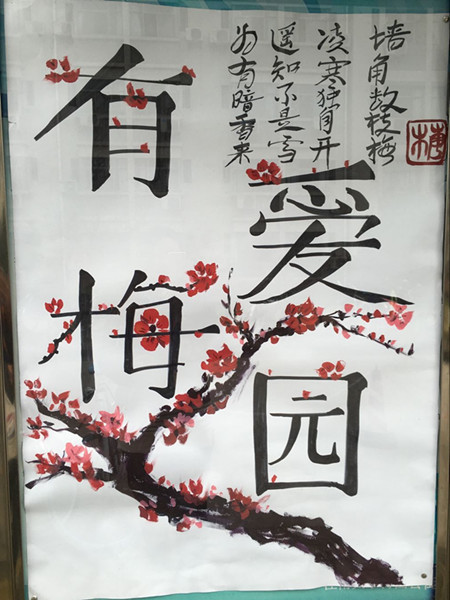 墙角数枝梅
凌寒独自开
遥知不是雪
为有暗香来
爱园
有梅